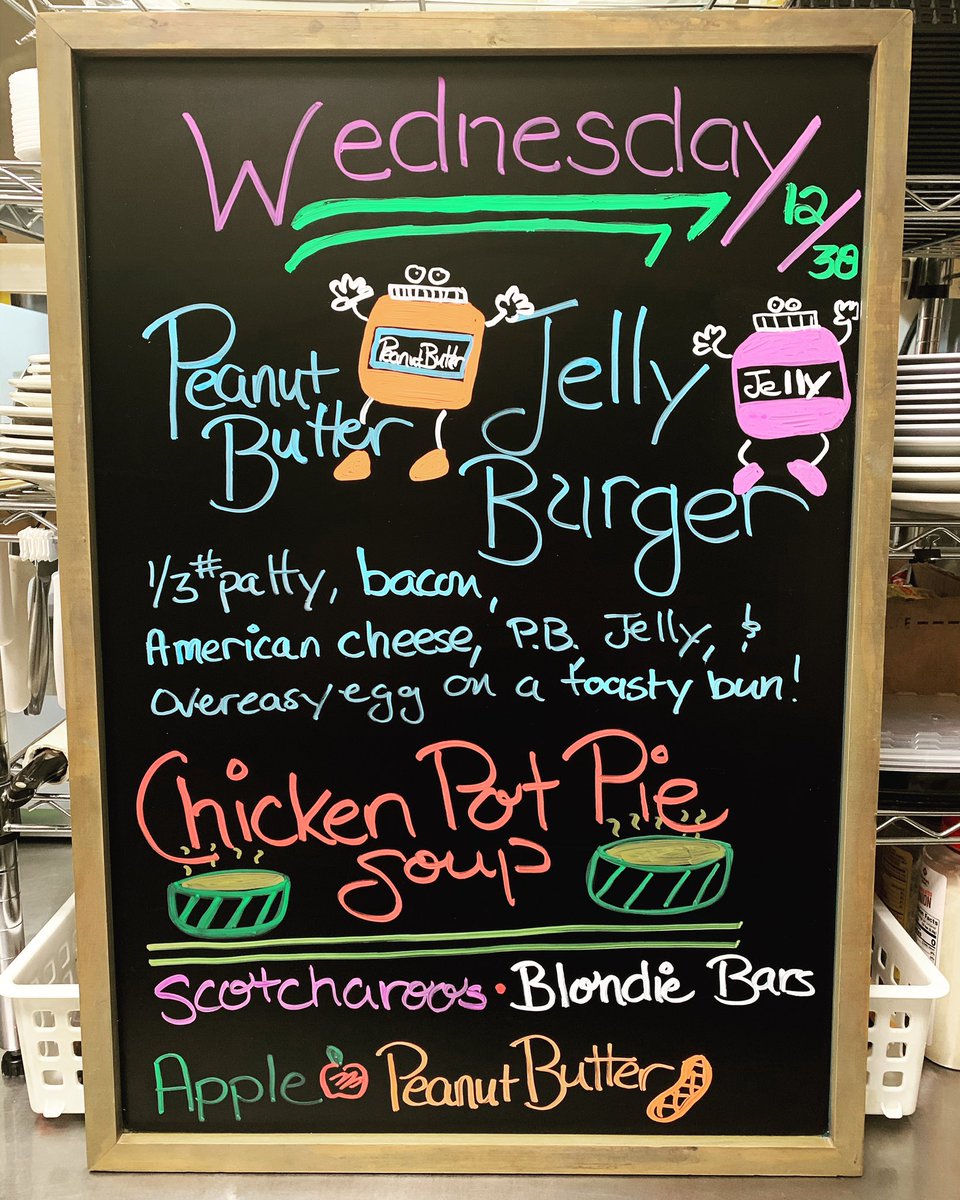 Wednesday
12/30
Peanut Butter
Peanut
Butter
Jelly
Jelly
Burger
1/3# patty, bacon,
American cheese, P.B. Jelly, &
overeasy egg on a toasty bun!
Chicken Pot Pie
Soup
Scotcharoos • Blondie Bars
Apple Peanut Butter